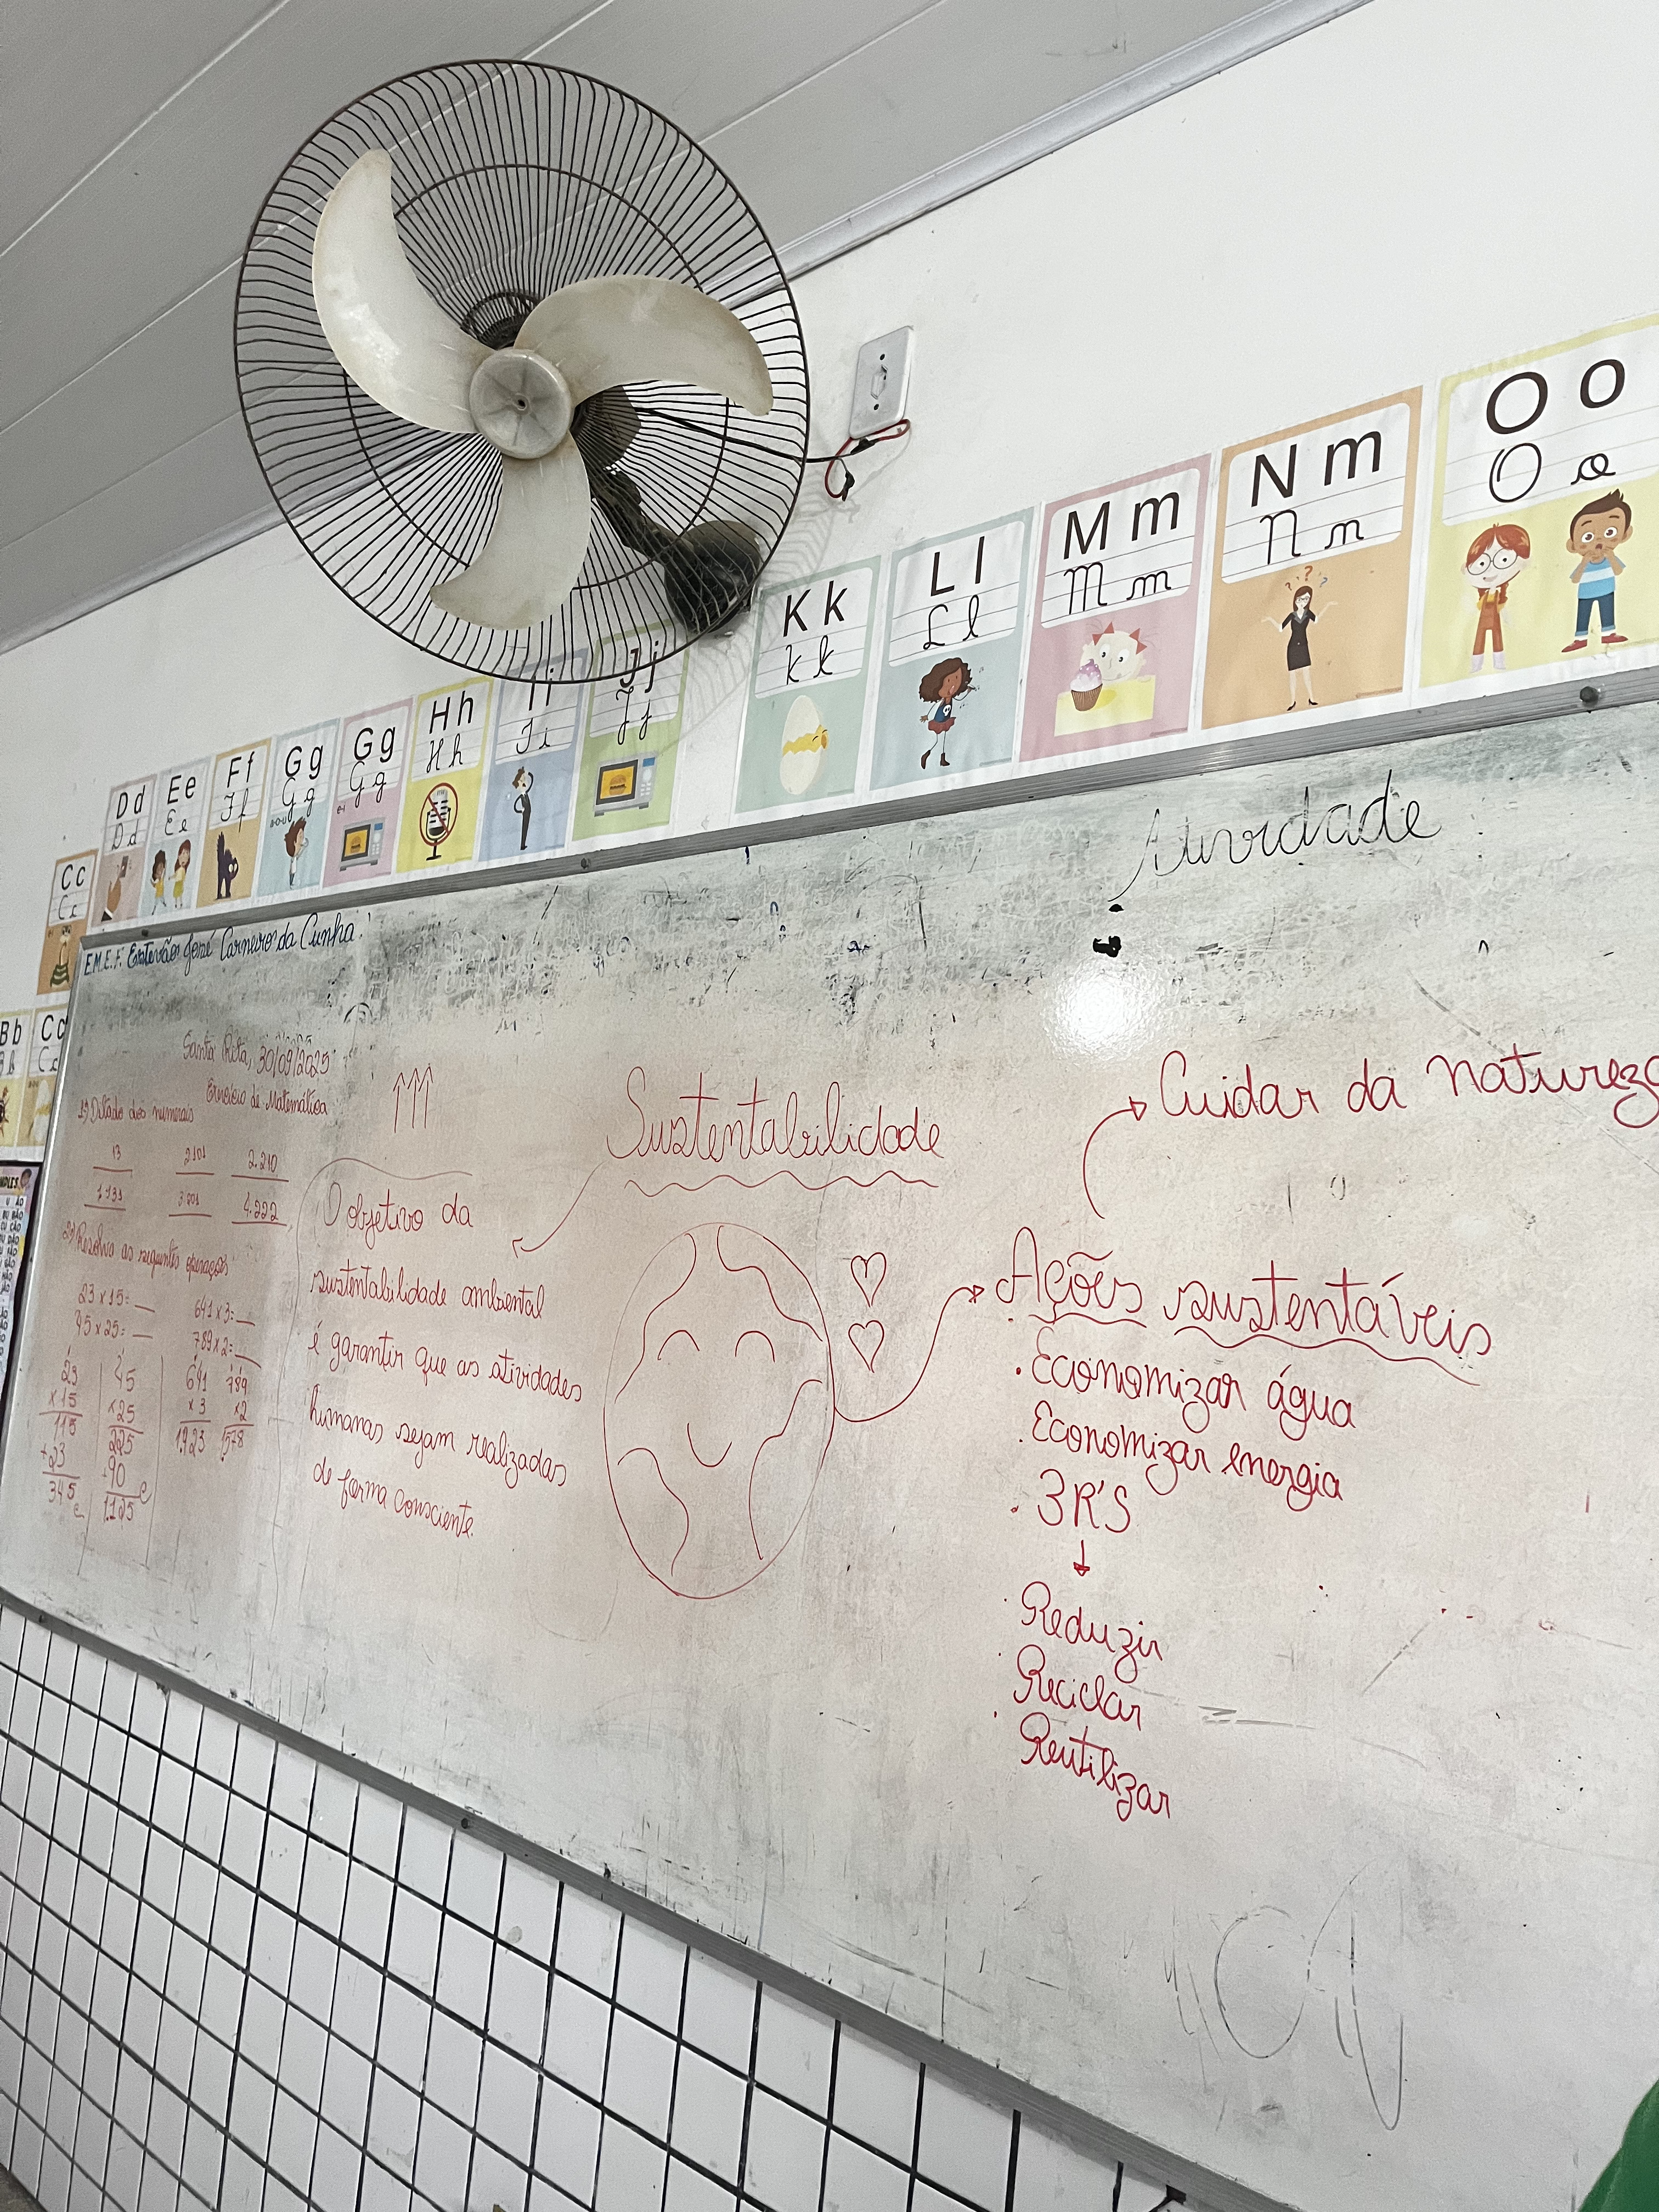 Cc
Cc
Dd
Dd
Ee
Ee
Ff
Ff
Gg
Gg
Gg
Gg
Hh
Hh
Ii
Jj
Jj
Kk
Kk
Ll
Ll
Mm
Mm
Nn
Nn
Oo
Oo
Bb
Cc
Atividade
E.M.E.F. Estevão José Carneiro da Cunha
Santa Rita, 30/09/2025
Exercício de Matemática
1º) Ditado dos numerais
13 2101 2.210
1.133 3.201 4.222
2º) Resolva as seguintes operações
23 x 15= __ 641 x 3= __
45 x 25= __ 789 x 2= __
23 45 641 789
x 15 x25 x 3 x2
115 225 1.923 1578
+23 90
345 1.125
Sustentabilidade
O objetivo da
sustentabilidade ambiental
é garantir que as atividades
humanas sejam realizadas
de forma consciente.
Cuidar da natureza
Ações sustentáveis
. Economizar água
. Economizar energia
. 3R'S
. Reduzir
. Reciclar
. Reutilizar